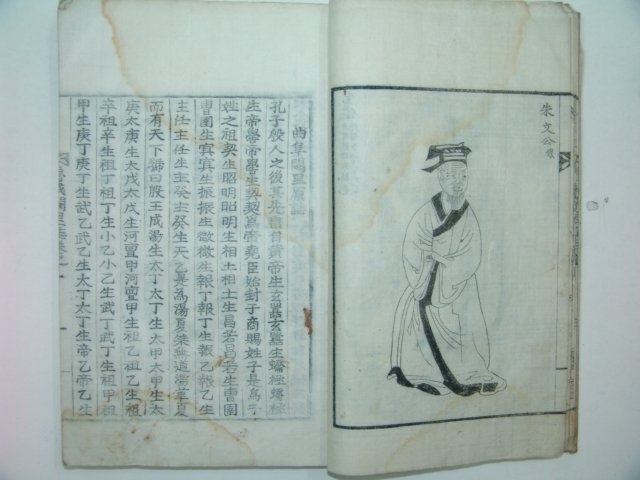 朱文公像
曲阜闕里
孔子殷人之後其先自黃帝生玄囂玄囂生蟜極蟜極
生帝嚳帝嚳生契契爲帝堯臣始封于商賜姓子是爲子
姓之祖契生昭明昭明生相土相土生昌若昌若生曹圉
曹圉生冥冥生振振生微微生報丁報丁生報乙報乙生
主任主任生主癸主癸生天乙是爲湯夏桀無道湯革夏
而有天下號曰殷王成湯生太丁太丁生太甲太甲生太
庚太庚生太戊太戊生河亶甲河亶甲生祖乙祖乙生祖
辛祖辛生祖丁祖丁生小乙小乙生武丁武丁生祖甲祖
甲生庚丁庚丁生武乙武乙生太丁太丁生帝乙帝乙生